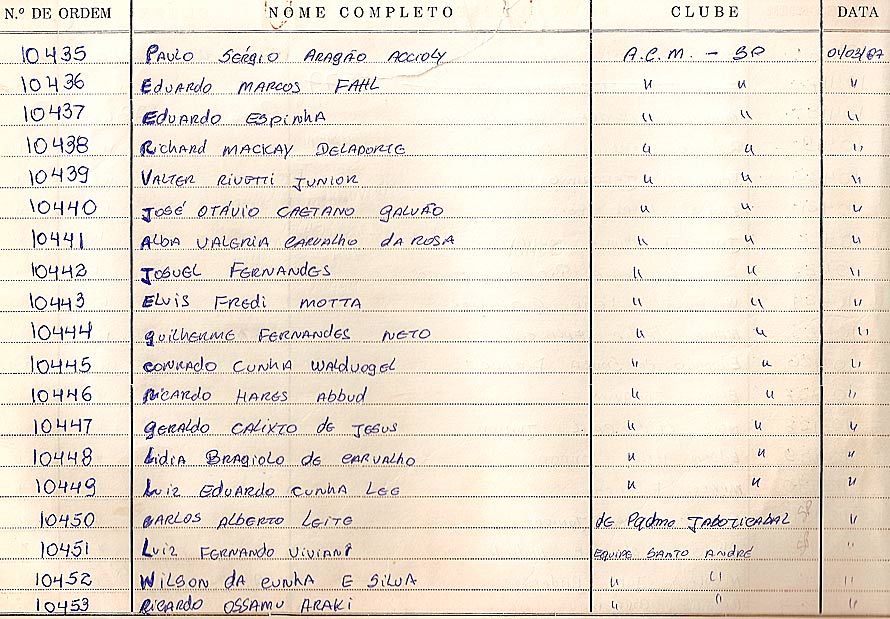 N.º DE ORDEM NOME COMPLETO CLUBE DATA
10435 Paulo Sérgio Aragão Accioly A.C.M. - SP 01/03/67
10436 Eduardo Marcos Fahl " " "
10437 Eduardo Espinha " " "
10438 Richard Mackay Deladorte " " "
10439 Valter Rivetti Junior " " "
10440 José Otávio Caetano Galvão " " "
10441 Alda Valeria Carvalho da Rosa " " "
10442 Josuel Fernandes " " "
10443 Elvis Fredi Motta " " "
10444 Guilherme Fernandes Neto " " "
10445 Conrado Cunha Walduogel " " "
10446 Ricardo Hares Abbud " " "
10447 Geraldo Calixto de Jesus " " "
10448 Lidia Bragiolo de Carvalho " " "
10449 Luiz Eduardo Cunha Lee " " "
10450 Carlos Alberto Leite de Jaboticabal "
10451 Luiz Fernando Viviani Equipe Santo André "
10452 Wilson da Cunha e Silva " " "
10453 Ricardo Ossamu Araki " " "